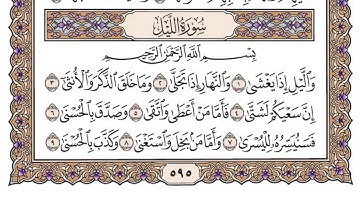 سُورَةُ اللَّيْلِ
بِسْمِ اللَّهِ الرَّحْمَٰنِ الرَّحِيمِ
وَاللَّيْلِ إِذَا يَغْشَىٰ ١ وَالنَّهَارِ إِذَا تَجَلَّىٰ ٢ وَمَا خَلَقَ الذَّكَرَ وَالْأُنثَىٰ ٣
إِنَّ سَعْيَكُمْ لَشَتَّىٰ ٤ فَأَمَّا مَنْ أَعْطَىٰ وَاتَّقَىٰ ٥ وَصَدَّقَ بِالْحُسْنَىٰ ٦
فَسَنُيَسِّرُهُ لِلْيُسْرَىٰ ٧ وَأَمَّا مَن بَخِلَ وَاسْتَغْنَىٰ ٨ وَكَذَّبَ بِالْحُسْنَىٰ ٩
٥٩٥